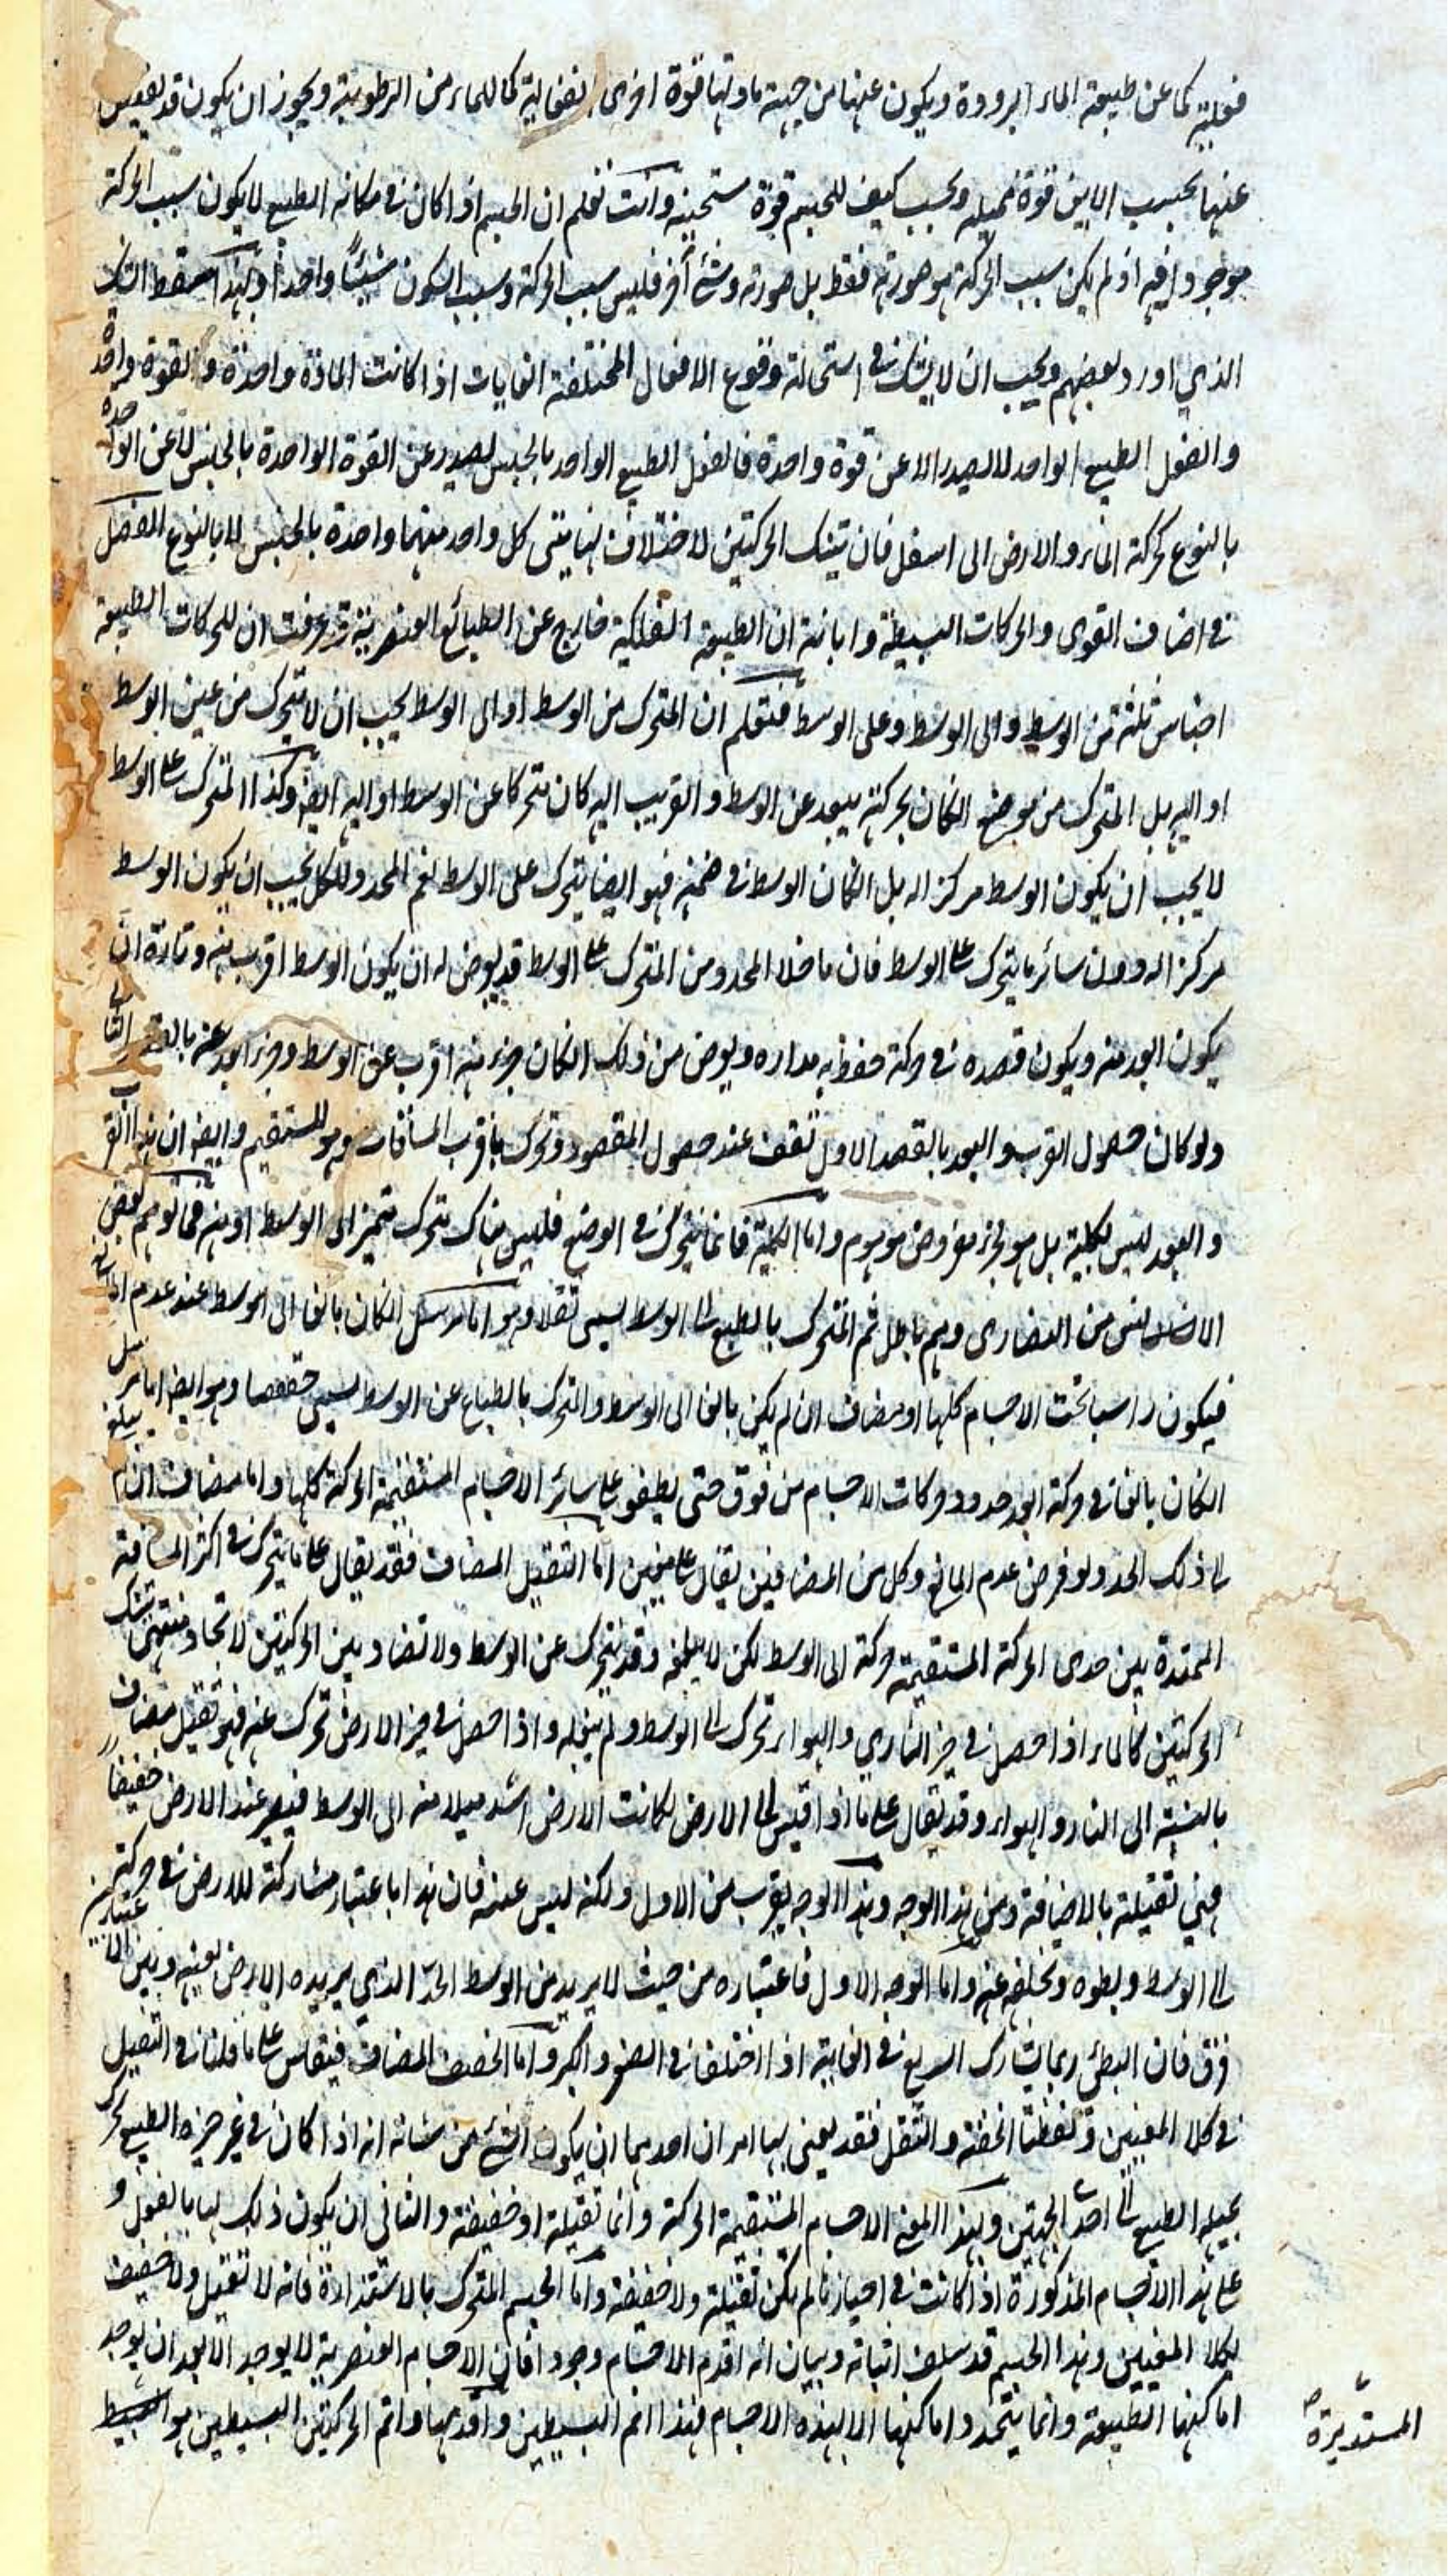 فعلية كما عن طبيعة الماء البرودة ويكون عنها من جهة مادتها قوة اخرى انفعالية كما للماء من الرطوبة ويجوز ان يكون قد يفيض
عنها بحسب الاين قوة مميله وبحسب كيف للجسم قوة وانت تعلم ان الجسم اذا كان في مكانه الطبيع لا يكون سبب الحركة
موجودا فيه اذ لم يكن سبب الحركة هو صورته فقط بل صورته وشئ آخر فليس سبب الحركة وسبب السكون شيئًا واحدا وبهذا سقط الشك
الذي اورد بعضهم ويجب ان لا يشك في استحالة وقوع الافعال المختلفة الغايات اذا كانت المادة واحدة والقوة واحدة
والفعل الطبيع الواحد لا يصدر الا عن قوة واحدة فالفعل الطبيع الواحد بالجنس يصدر عن القوة الواحدة بالجنس لا عن الواحدة
بالنوع كحركة الماء والارض الى اسفل فان تينك الحركتين لاختلاف نهايتى كل واحد منهما واحدة بالجنس لا بالنوع الفصل
في اصناف القوى والحركات البسيطة وابانة ان الطبيعة الفلكية خارج عن الطبائع العنصرية قد عرفت ان للحركات الطبيعة
اجناس ثلثة من الوسط والى الوسط وعلى الوسط فتعلم ان المتحرك من الوسط او الى الوسط يجب ان لا يتحرك من عين الوسط
او اليه بل المتحرك من موضع انكان بحركته يبعد عن الوسط والقريب اليه كان متحركا عن الوسط او اليه ايضا وكذا المتحرك على الوسط
لا يجب ان يكون الوسط مركزا له بل انكان الوسط في ضمنه فهو ايضا يتحرك على الوسط نعم المحدد للكل يجب ان يكون الوسط
مركزا له دون سائر ما يتحرك على الوسط فان ما خلا المحدد من المتحرك على الوسط قد يعرض له ان يكون الوسط اقرب منه وتارة ان
يكون ابعد منه ويكون قصده في حركة حفظ به مداره ويعرض من ذلك انكان جزء منه اقرب عن الوسط وجزء ابعد عنه بالقصد الثانى
ولو كان حصول القرب والبعد بالقصد الاول لتقف عند حصول المقصود وتحرك باقرب المسافات وهو المستقيم وايضا ان هذا القرب
والبعد ليس لكلية بل هو لجزء مفروض موهوم واما الكلية فانما يتحرك في الوضع فليس هناك متحرك متحيز الى الوسط او منه فما توهم بعض
الاناس من النصارى وهم باطل ثم المتحرك بالطبع الى الوسط يسمى ثقلا وهو اما مرسل انكان بالغا الى الوسط عند عدم المانع
فيكون راسبا تحت الاجسام كلها او مضاف ان لم يكن بالغا الى الوسط والمتحرك بالطباع عن الوسط يسمى خفيفا وهو ايضا اما مرسل
انكان بالغا في حركة ابعد حدود حركات الاجسام من فوق حتى يطفو على سائر الاجسام المستقيمة الحركة كلها واما مضاف ان لم يبلغ
الى ذلك الحد ولو فرض عدم المانع وكل من المضافين يقال على معنيين اما الثقيل المضاف فقد يقال على ما يتحرك في اكثر المسافة
الممتدة بين حدى الحركة المستقيمة حركة الى الوسط لكن لا يبلغه وقد يتحرك عن الوسط ولا تضاد بين الحركتين لاتحاد منتهى تينك
الحركتين كالماء اذا حصل في حيز الناري والهواء تحرك الى الوسط ولم يبلغه واذا حصل في حيز الارض تحرك عنه فهو ثقيل مضاف
بالنسبة الى النار والهواء وقد يقال على ما اذا قيس الى الارض لكانت الارض اشد ميلا منه الى الوسط فيصير عند الارض خفيفا
فهي ثقيلة بالاضافة ومن هذا الوجه وهذا الوجه يقرب من الاول ولكنه ليس عينه فان هذا باعتبار مشاركة للارض في حركته
الى الوسط وبطوه وتخلفه عنه واما الوجه الاول فاعتباره من حيث لا يريد من الوسط الحد الذي يريده الارض بعينه وبين الاعتبارين
فرق فان البطئ ربما يشارك السريع في الغاية اذا اختلفا في الصغر والكبر واما الخفيف المضاف فيقاس على ما قلنا في الثقيل
في كلا المعنيين ولفظتا الخفة والثقل فقد يعنى بهما امران احدهما ان يكون الشئ من شانه انه اذا كان في غير حيزه الطبيع تحرك
بميله الطبيع الى احد الجهتين وبهذا المعنى الاجسام المستقيمة الحركة دائما ثقيلة او خفيفة والثانى ان يكون ذلك لها بالفعل و
على هذا الاجسام المذكورة اذا كانت في احيازها لم يكن ثقيلة ولا خفيفة واما الجسم المتحرك بالاستدارة فانه لا ثقيل ولا خفيف
بكلا المعنيين وهذا الجسم قد سلف اثباته وبيان انه اقدم الاجسام وجودا فان الاجسام العنصرية لا يوجد الا بعد ان يوجد
اماكنها الطبيعة وانما يتحدد اماكنها الا بهذه الاجسام فهذا اتم البسيطين واقدمهما واتم الحركتين البسيطين هو البسيط
المستديرة